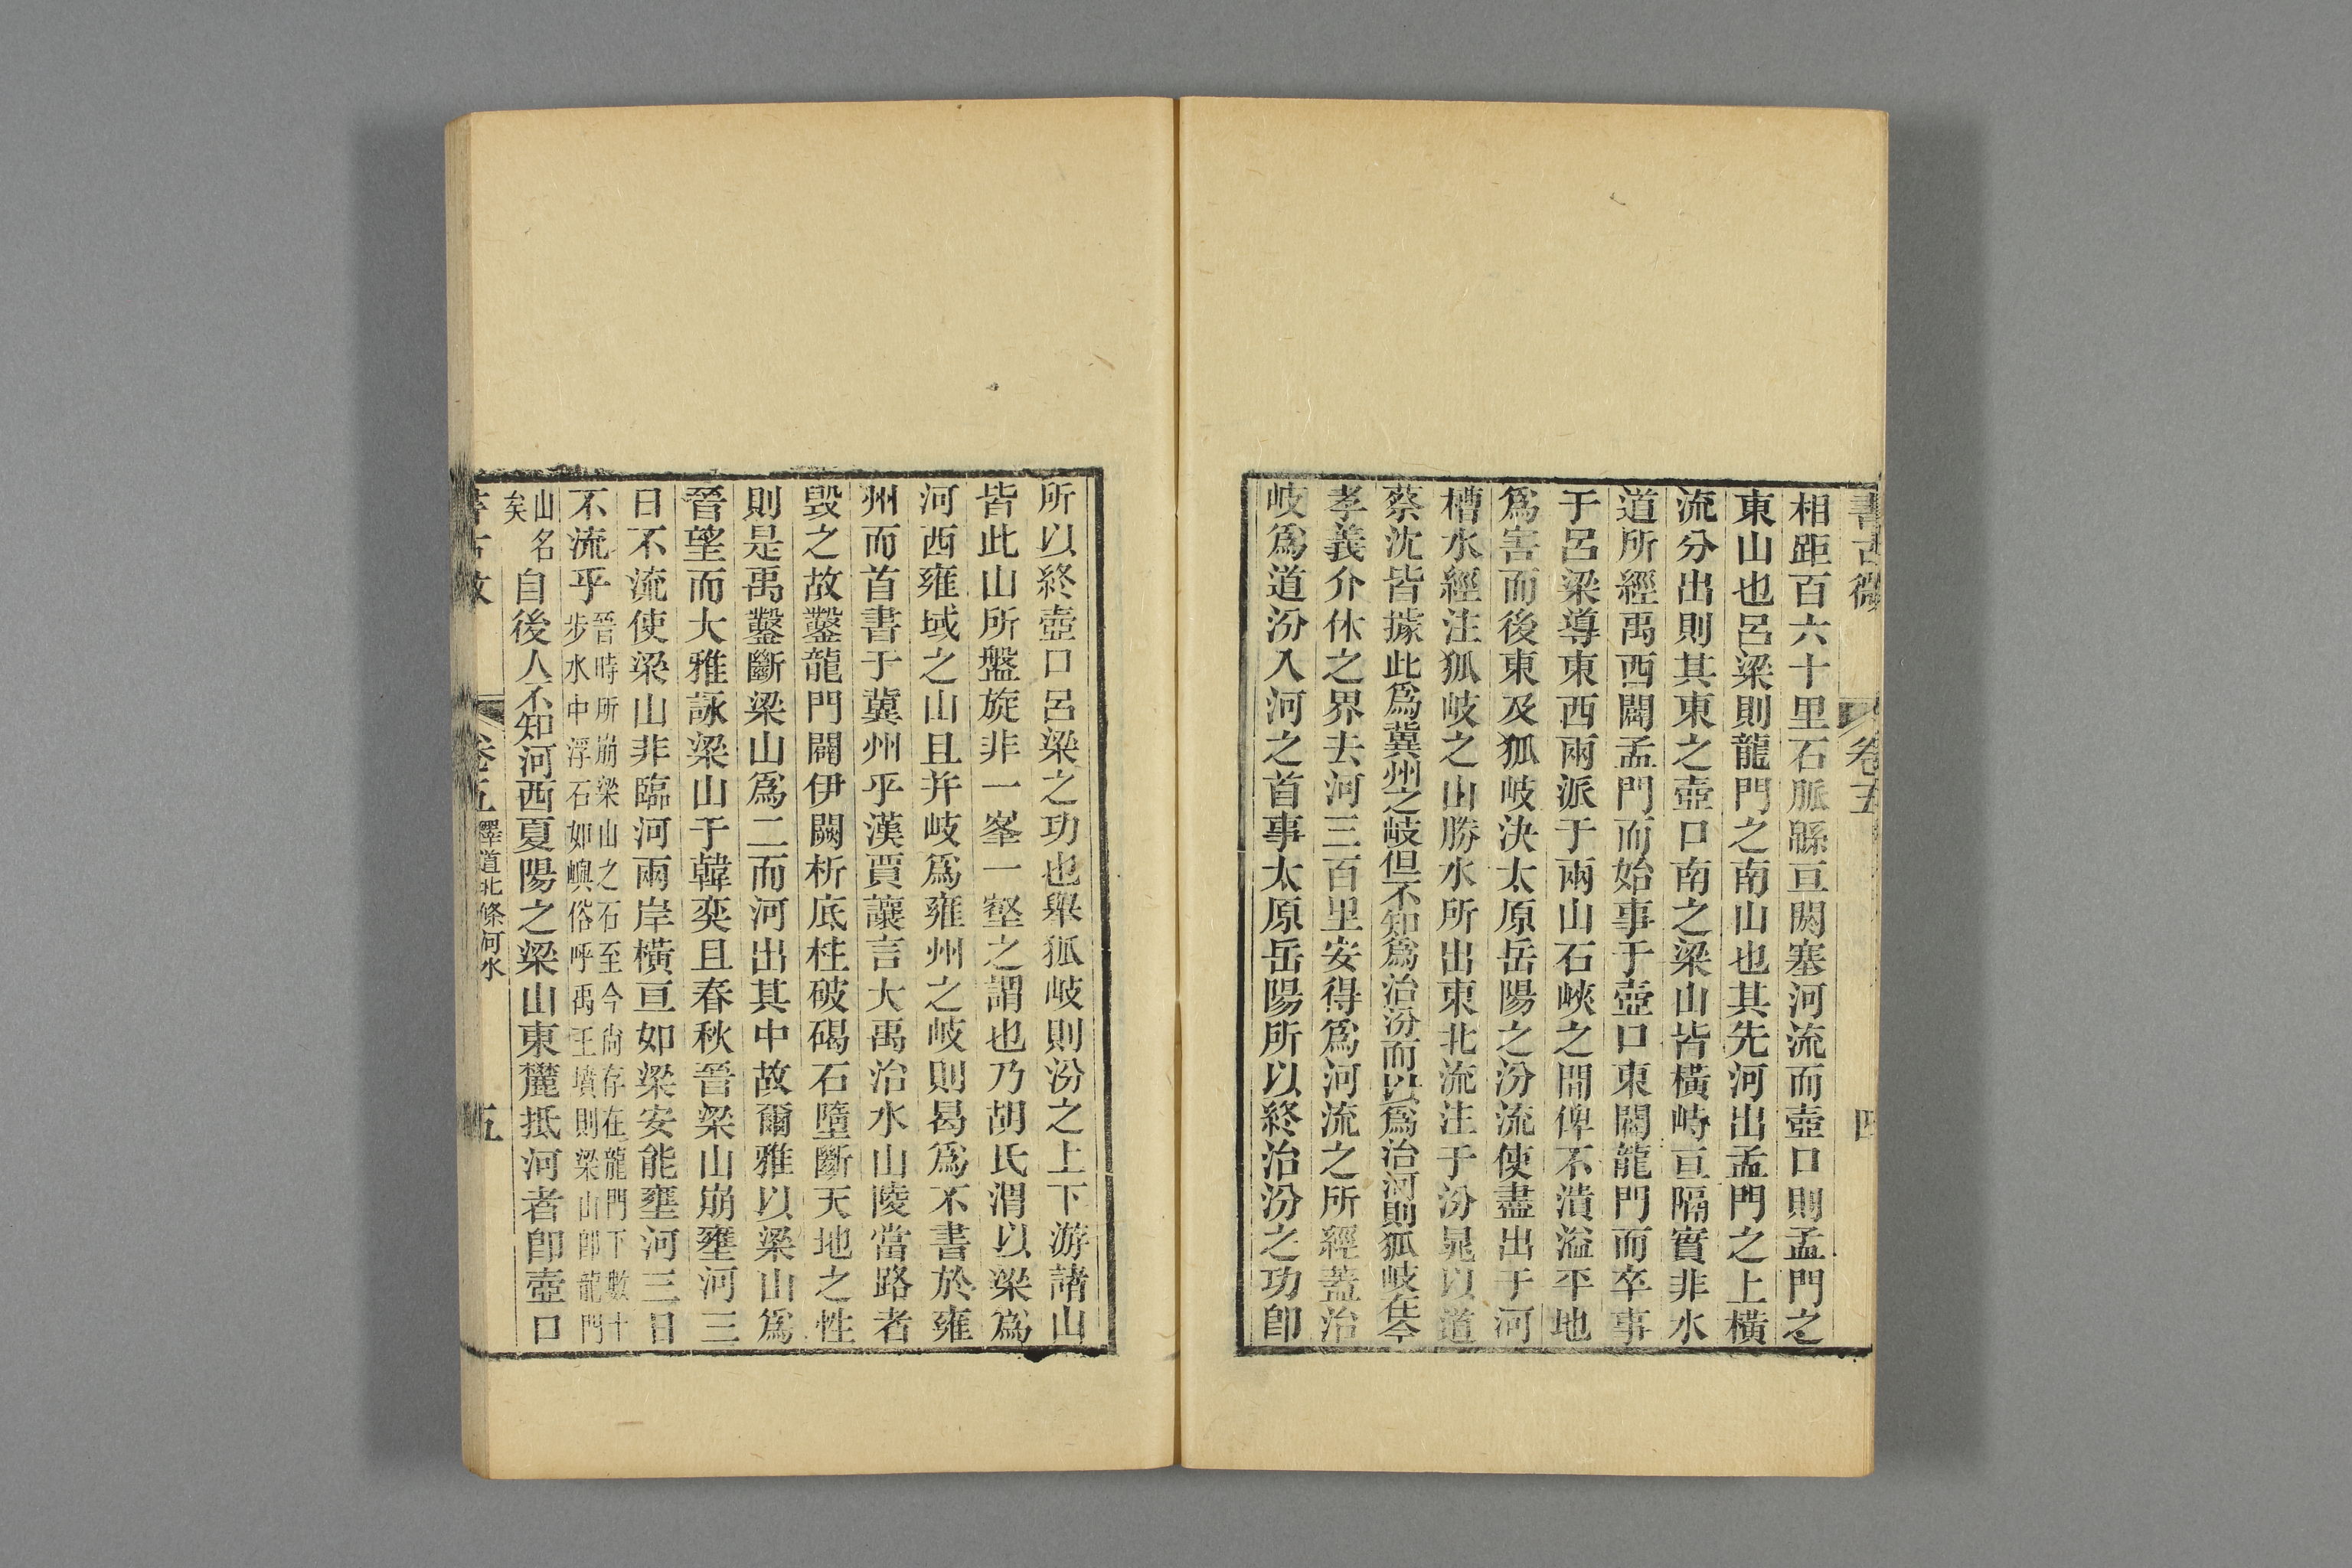 書古微
卷五
四
相距百六十里石脈緜亘閼塞河流而壺口則孟門之
東山也呂梁則龍門之南山也其先河出孟門之上橫
流分出則其東之壺口南之梁山皆橫峙亘隔實非水
道所經禹西闢孟門而始事于壺口東闢龍門而卒事
于呂梁導東西兩派于兩山石峽之間俾不潰溢平地
爲害而後東及狐岐決太原岳陽之汾流使盡出于河
槽水經注狐岐之山勝水所出東北流注于汾晁以道
蔡沈皆據此爲冀州之岐但不知爲治汾而以爲治河則狐岐在今
孝義介休之界去河三百里安得爲河流之所經蓋治
岐爲道汾入河之首事太原岳陽所以終治汾之功卽
所以終壺口呂梁之功也舉狐岐則汾之上下游諸山
皆此山所盤旋非一峯一壑之謂也乃胡氏渭以梁爲
河西雍域之山且并岐爲雍州之岐則曷爲不書於雍
州而首書于冀州乎漢賈讓言大禹治水山陵當路者
毀之故鑿龍門闢伊闕析底柱破碣石墮斷天地之性
則是禹鑿斷梁山爲二而河出其中故爾雅以梁山爲
晉望而大雅詠梁山于韓奕且春秋晉梁山崩壅河三
日不流使梁山非臨河兩岸橫亘如梁安能壅河三日
不流乎晉時所崩梁山之石至今尚存在龍門下數十
步水中浮石如嶼俗呼禹王墳則梁山卽龍門
山名
矣
自後人不知河西夏陽之梁山東麓抵河者卽壺口
卷五
釋道北條河水
五